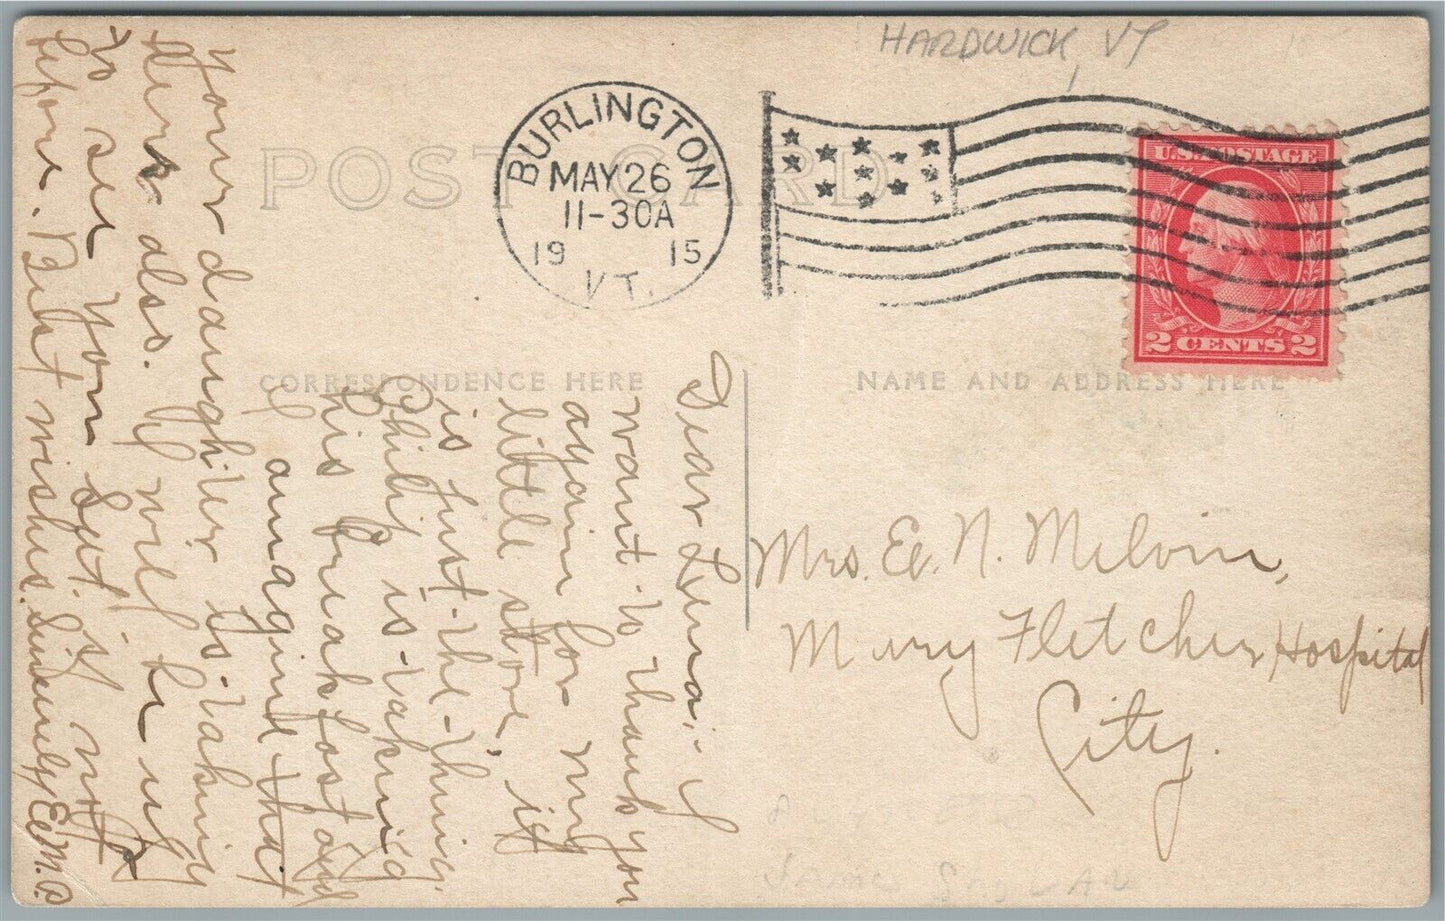 HARDWICK, VT
POST CARD
BURLINGTON
MAY 26
11-30A
19 15
VT.
U.S. POSTAGE
2 CENTS 2
CORRESPONDENCE HERE
NAME AND ADDRESS HERE
Mrs. E. N. Melvin,
Mary Fletcher Hospital
City.
Dear Lena,- I
want to thank you
again for my
little store, it
is just-the-thing.
Philip is-taking
his breakfast and
I imagine that
your daughter is-taking
hers also. I will be up
to see you Sat. if not
before. Best wishes. Sincerely E.M.B.